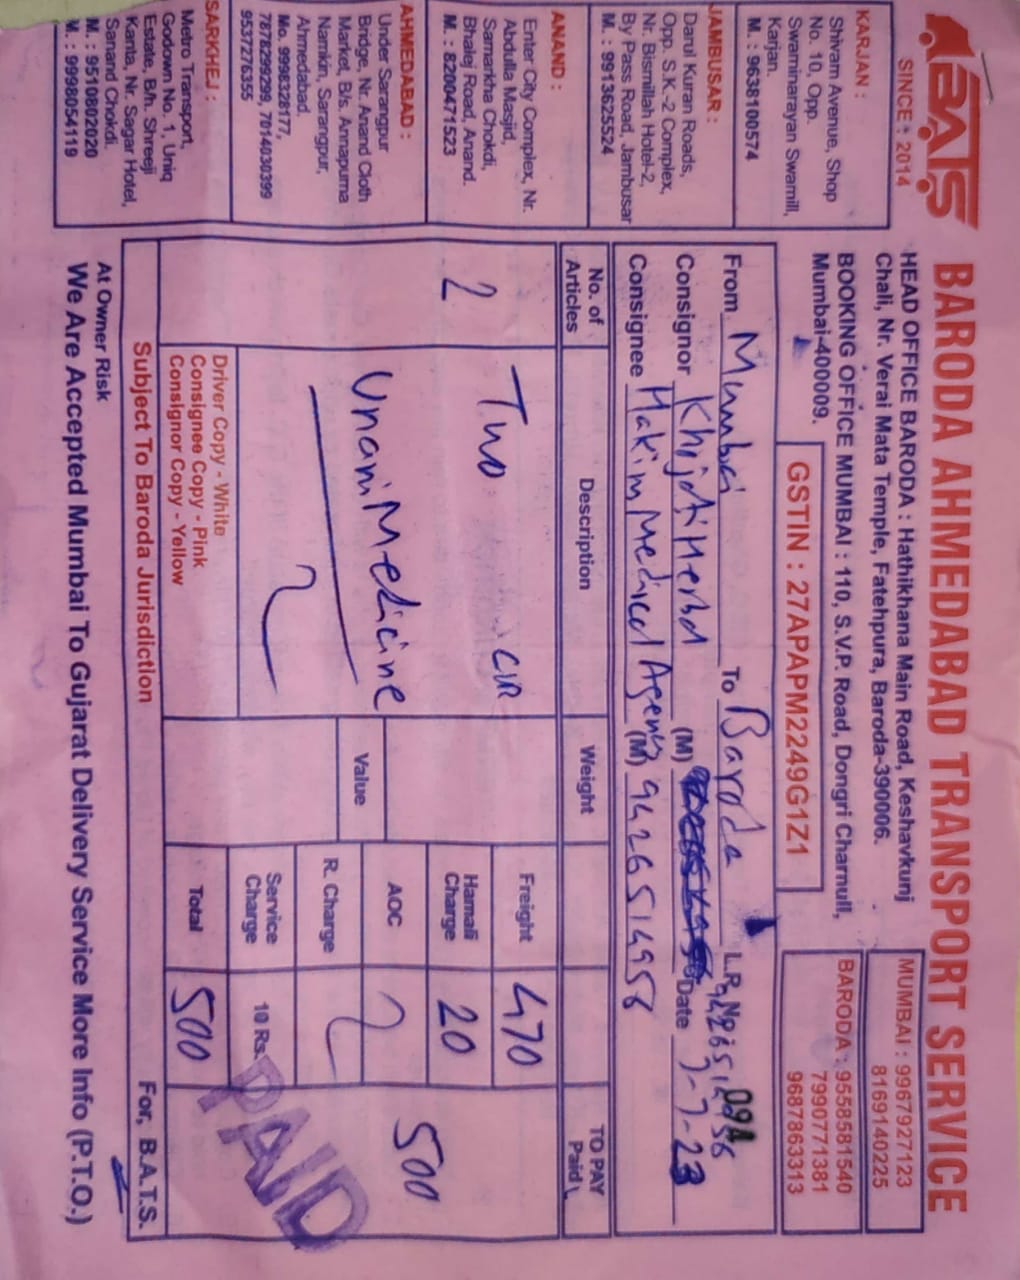 BATS
SINCE - 2014
BARODA AHMEDABAD TRANSPORT SERVICE
HEAD OFFICE BARODA : Hathikhana Main Road, Keshavkunj
Chali, Nr. Verai Mata Temple, Fatehpura, Baroda-390006.
BOOKING OFFICE MUMBAI : 110, S.V.P. Road, Dongri Charnull,
Mumbai-400009.
GSTIN : 27APAPM2249G1Z1
MUMBAI : 9967927123
8169140225
BARODA : 9558581540
7990771381
9687863313
KARJAN :
Shivam Avenue, Shop
No. 10, Opp.
Swaminarayan Swamill,
Karjan.
M. : 9638100574
JAMBUSAR :
Darul Kuran Roads,
Opp. S.K.-2 Complex,
Nr. Bismillah Hotel-2,
By Pass Road, Jambusar
M. : 9913625524
ANAND :
Enter City Complex, Nr.
Abdulla Masjid,
Samarkha Chokdi,
Bhalej Road, Anand.
M. : 8200471523
AHMEDABAD :
Under Sarangpur
Bridge, Nr. Anand Cloth
Market, B/s. Annapurna
Namkin, Sarangpur,
Ahmedabad.
Mo. 9998328177,
7878299299, 7014030399
9537276355
SARKHEJ :
Metro Transport,
Godown No. 1, Uniq
Estate, B/h. Shreeji
Kanta, Nr. Sagar Hotel,
Sanand Chokdi.
M. : 9510802020
M. : 9998054119
From Mumbai To Baroda L.R. No.
Consignor Khojati Herbal (M) Date 7-7-23
Consignee Hakim Medical Agency (M) 9426514958
No. of Articles Description Weight TO PAY Paid
2 Two CIR Freight 470
Hamali Charge 20
Unani Medicine AOC 500
Value R. Charge
Service Charge 10 Rs.
Total 500
PAID
Driver Copy - White
Consignee Copy - Pink
Consignor Copy - Yellow
Subject To Baroda Jurisdiction For, B.A.T.S.
At Owner Risk
We Are Accepted Mumbai To Gujarat Delivery Service More Info (P.T.O.)